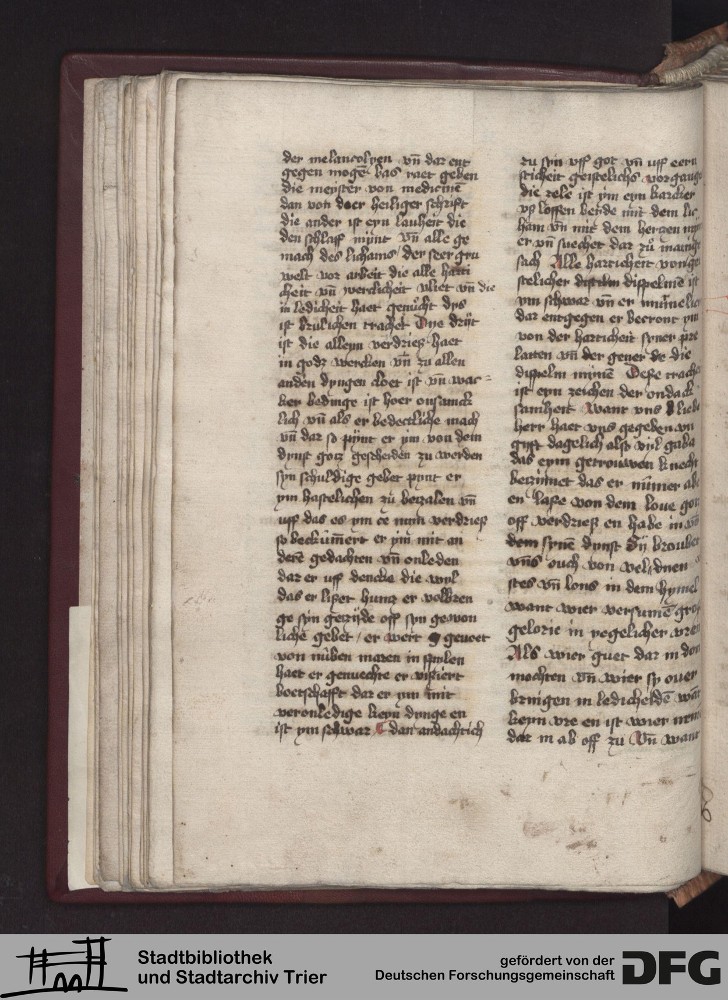 der melancolyen vn̄ dar ent
gegen mogē bas raet geben
die meyster von medicinē
dan von door heiliger schrift
die ander ist eyn lauheit die
den schlaff mynt vn̄ alle ge
mach des lichams / der seer gru
welt vor arbeit die alle hatti
cheit vn̄ werclicheit vliet vn̄ die
in ledicheit haet genucht dys
ist trulichen tracheit Dye dryt
ist die alleyn verdriesz haet
in godz wercken vn̄ zu allen
anden dyngen cloet ist vn̄ wac
ker bedinge ist hoer onsanck
lich vn̄ als er bedectliche mach
vn̄ dar so pynt er ym von dem
dynst gotz gescheiden zu werden
syn schuldige gebet pynt er
ym hastelichen zu betzalen vn̄
uff das es ym ce nyin verdriesz
so beckūmert er ym mit an
derē gedachten vn̄ onleden
dar er uff dencke die wyl
das er liset hunz er volbren
ge syn getzyde off syn gewon
liche gebet / er wert gevoet
von nuben maren in spulen
haet er genuechte er visiert
boetschafft dar er ym mit
veronledige keyn dynge en
ist ym schwar dan andachtich
zu syn uff got vn̄ uff eern
sticheit geistelichs vorgangs
die zele ist ym eyn karcker
vs loffen beide mit dem lic
ham vn̄ mit dem hertzen
er vn̄ suechet dar zu
sach Alle hatticheit von
stelicher disciplinē ist
ym schwar vn̄ er
dar entgegen er becront ym
von der hatticheit syner pre
laten vn̄ der gener de die
disciplin mynē Dese trach
ist eyn zeichen der ondack
samheit want vns lieb
herr haet vns gegeben vn̄
gyft dagelich alsz vyl
das eym getrouwen knecht
betzimet das er nūmer
en lasze von dem love
off verdriesz en habe in
dem synē dynst Dz
vns ouch von
stes vn̄ lons in dem hymel
want wier versumē
gelorie in yegelicher vren
Als wier guet dar in don
mochten vn̄ wier sy over
bringen in ledichedē
keyn vre en ist wier
dar in ab off zu Vn̄ want
Stadtbibliothek
und Stadtarchiv Trier
gefördert von der
Deutschen Forschungsgemeinschaft
DFG